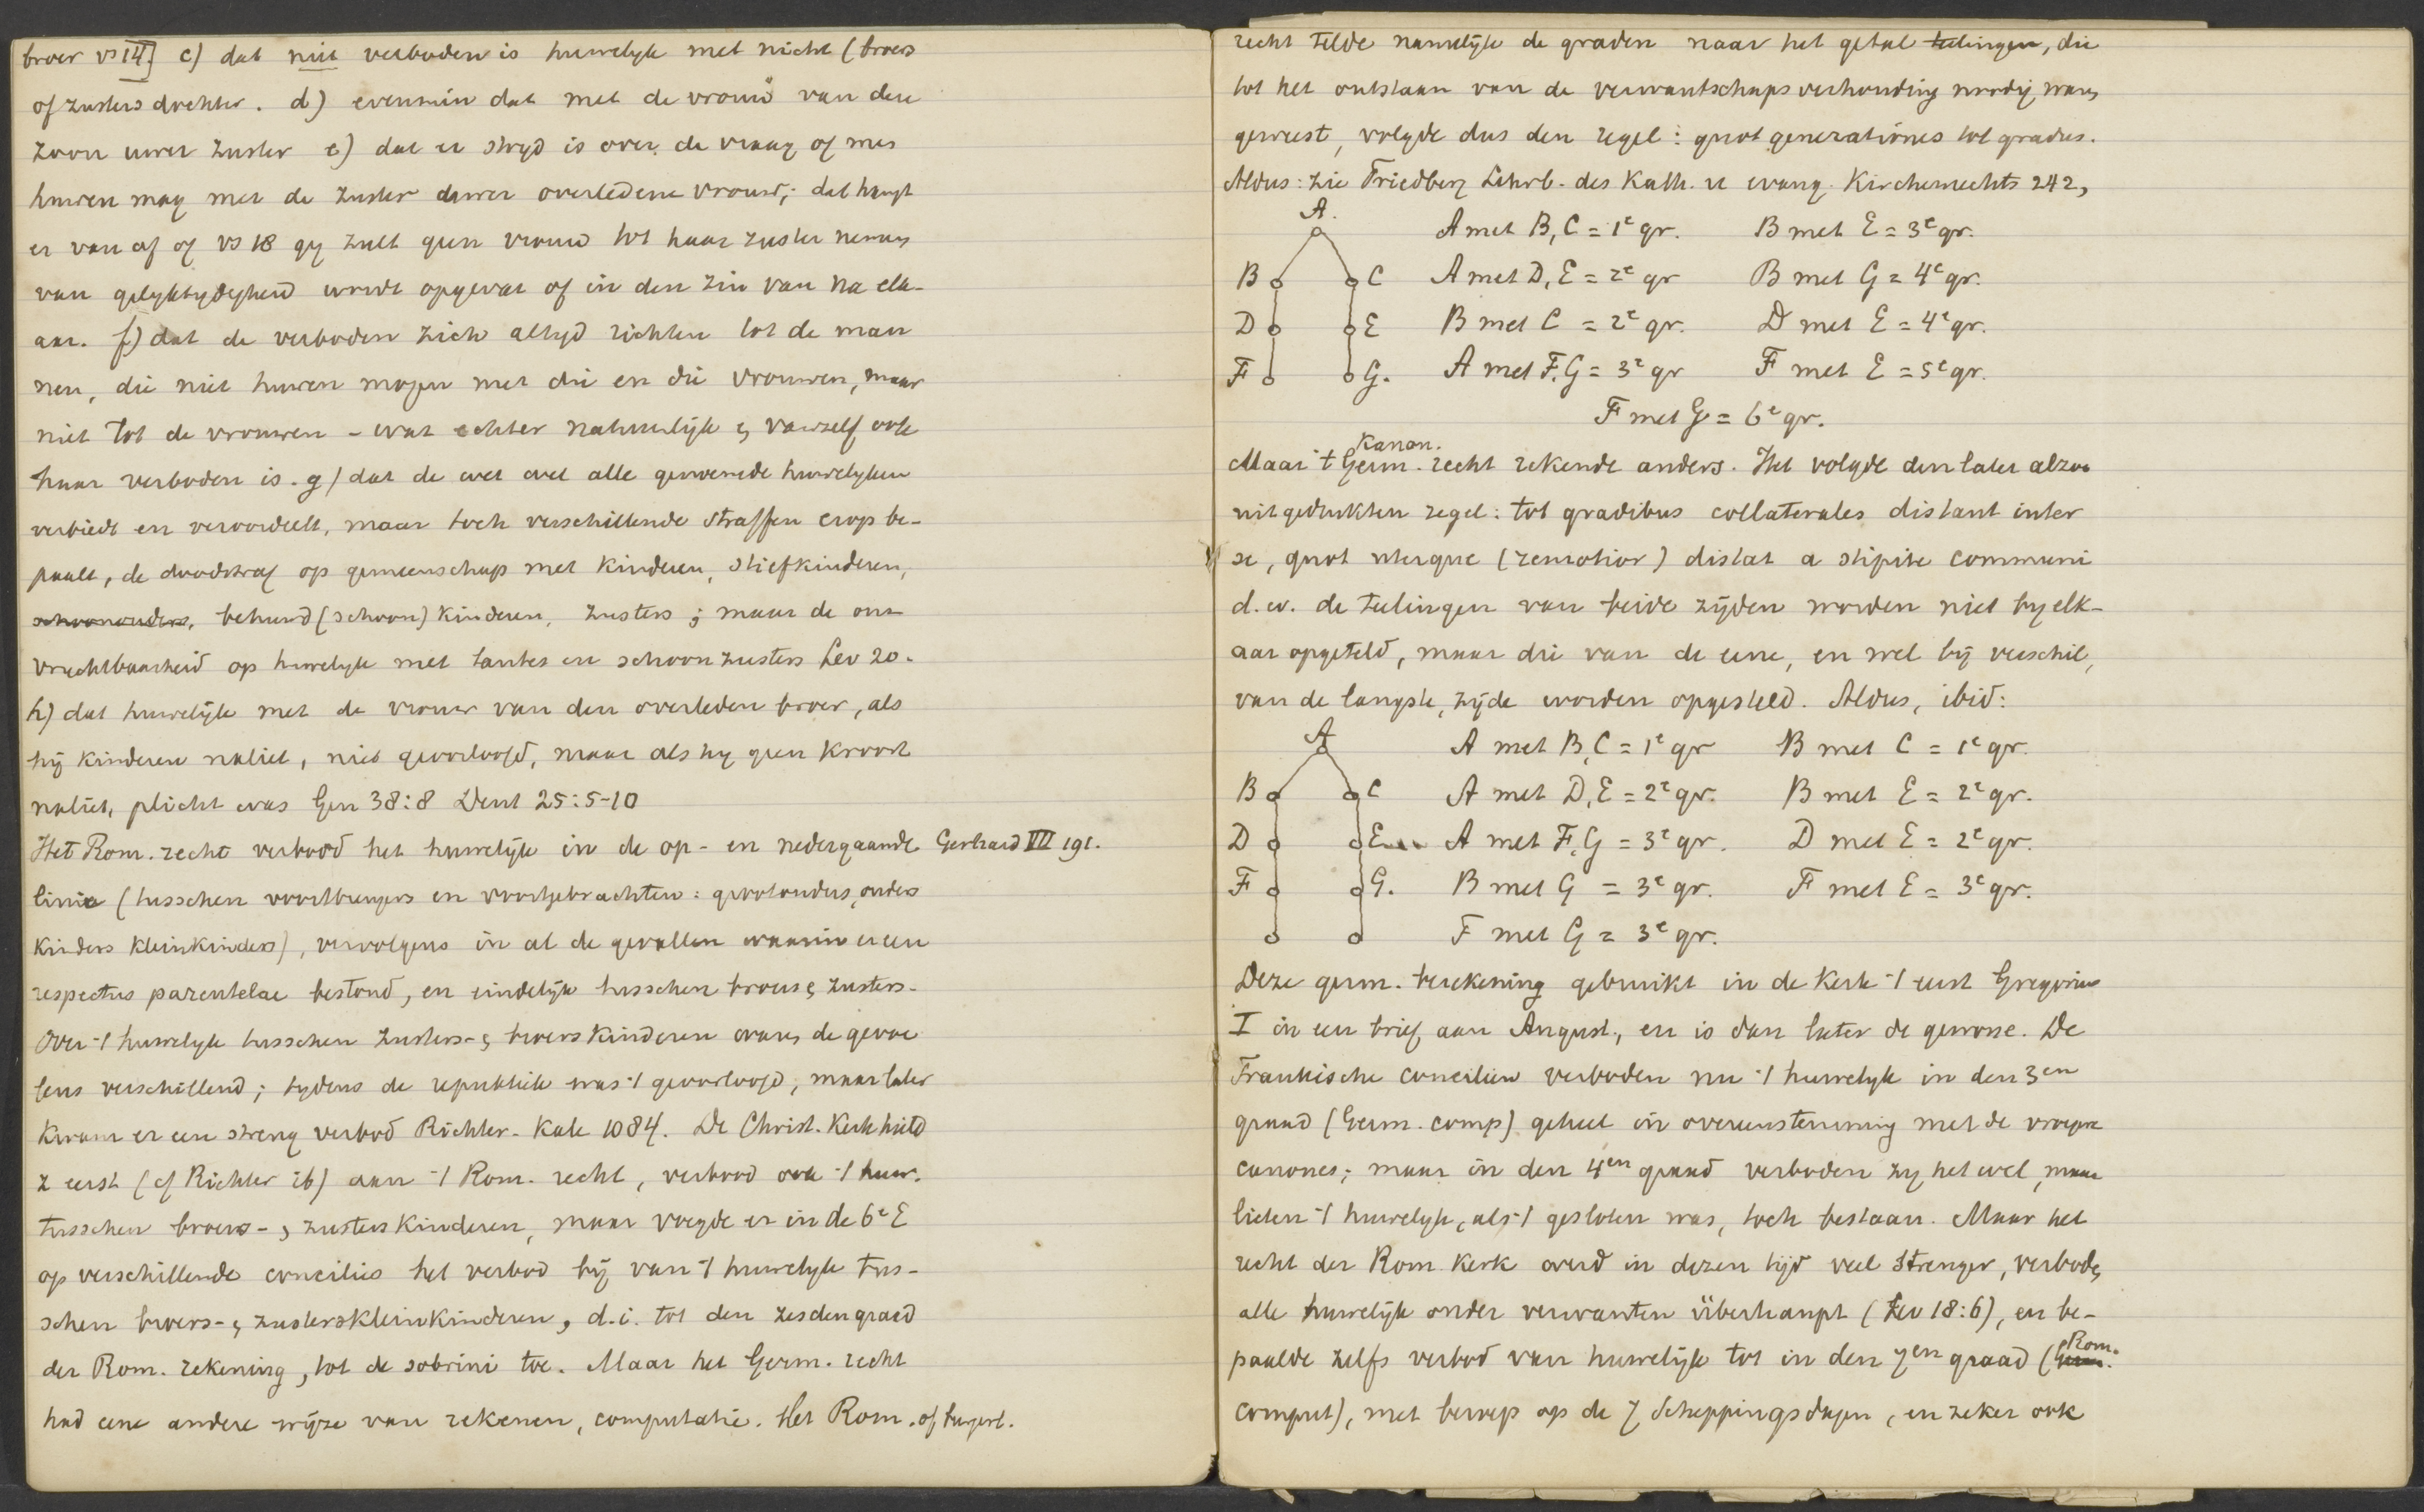 broer vs 14] c) dat niet verboden is huwelijk met nicht (broers
of zusters dochter. d) evenmin dat met de vrouw van den
zoon uwer zuster e) dat er stryd is over de vraag of men
huwen mag met de zuster dewer overledene vrouw; dat hangt
er van af of vs 18 gy zult geen vrouw tot haar zuster nemen
van gelyktydigheid wordt opgevat of in den zin van na elk-
aar. f) dat de verboden zich altyd richten tot de man
nen, die niet huwen mogen met die en die vrouwen, maar
niet tot de vrouwen - wat echter natuurlijk & vanzelf ook
haar verboden is. g) dat de wet wel alle genoemde huwelyken
verbiedt en veroordeelt, maar toch verschillende straffen erop be-
paalt, de doodstraf op gemeenschap met kinderen, stiefkinderen,
schoonouders, behuwd (schoon) kinderen, zusters; maar de on-
vruchtbaarheid op huwelyk met tantes en schoonzusters Lev 20.
h) dat huwelijk met de vrouw van den overleden broer, als
hij kinderen naliet, niet geoorloofd, maar als hy geen kroost
naliet, plicht was Gen 38:8 Deut 25:5-10
Het Rom. recht verbood het huwelijk in de op- en nedergaande Gerhard VII 191.
linie (tusschen voortbrengers en voortgebrachten: grootouders, ouders
kinders kleinkinders), vervolgens in al de gevallen waarin er een
respectus parentelae bestond, en eindelijk tusschen broers & zusters.
Over 't huwelyk tusschen zusters- & broerskinderen waren de gevoe
lens verschillend; tydens de republiek was 't geoorloofd, maar later
kwam er een streng verbod Richter-Kahl 1084. De Christ. Kerk hield
z eerst (cf Richter ib) aan 't Rom. recht, verbood ook 't huw.
tusschen broers- & zusterskinderen, maar voegde er in de 6e E
op verschillende concilies het verbod bij van 't huwelyk tus-
schen broers- & zusterskleinkinderen, d.i. tot den zesden graad
der Rom. rekening, tot de sobrini toe. Maar het Germ. recht
had eene andere wijze van rekenen, computatie. Het Rom. of burgerl.
recht telde namelijk de graden naar het getal teelingen, die
tot het ontstaan van de verwantschapsverhouding noodig waren
geweest, volgde dus den regel: quot generationes tot gradus.
Aldus: zie Friedberg Lehrb. des Kath. u evang. Kirchenrechts 242,
A.
A met B, C = 1e gr. B met E = 3e gr.
B C A met D, E = 2e gr B met G = 4e gr.
D E B met C = 2e gr. D met E = 4e gr.
F G. A met F, G = 3e gr F met E = 5e gr.
F met G = 6e gr.
Kanon.
Maar 't Germ. recht rekende anders. Het volgde den later alzoo
uitgedrukten regel: tot gradibus collaterales distant inter
se, quot uterque (remotior) distat a stipite communi
d.w. de teelingen van beide zijden worden niet by elk-
aar opgeteld, maar die van de eene, en wel bij verschil,
van de langste, zijde worden opgesteld. Aldus, ibid:
A A met B, C = 1e gr B met C = 1e gr.
B C A met D, E = 2e gr. B met E = 2e gr.
D E A met F, G = 3e gr. D met E = 2e gr.
F G. B met G = 3e gr. F met E = 3e gr.
F met G = 3e gr.
Deze germ. berekening gebruikt in de Kerk 't eerst Gregorius
I in een brief aan August., en is dan later de gewone. De
Frankische concilien verboden nu 't huwelyk in den 3en
graad (Germ. comp) geheel in overeenstemming met de vroegere
canones; maar in den 4en graad verboden zy het wel, maar
lieten 't huwelyk, als 't gesloten was, toch bestaan. Maar het
recht der Rom Kerk werd in dezen tijd veel strenger, verbode
alle huwelijk onder verwanten überhaupt (Lev 18:6), en be-
paalde zelfs verbod van huwelijk tot in den 7en graad (Germ. Rom.
comput), met beroep op de 7 scheppingsdagen, en zeker ook